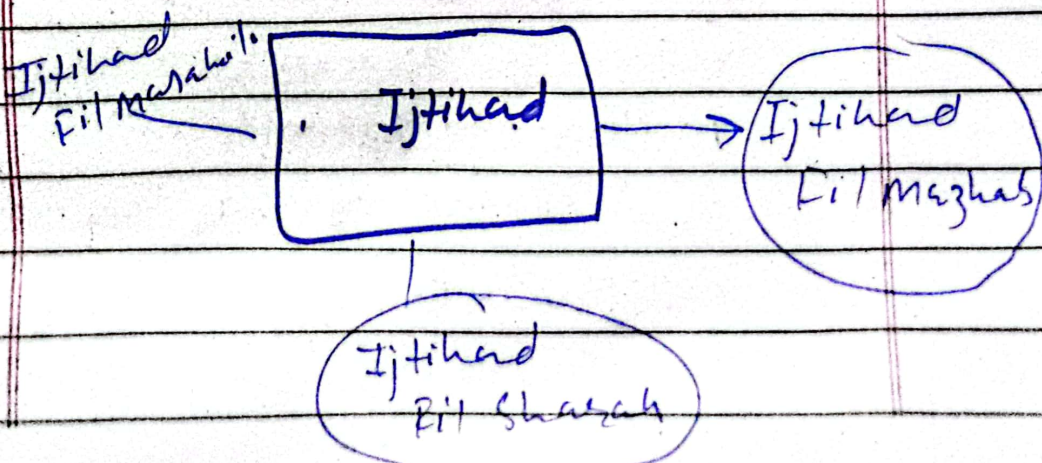 Ijtihad
Fil Masahil
Ijtihad
Ijtihad
Fil Mazhab
Ijtihad
Fil Sharah